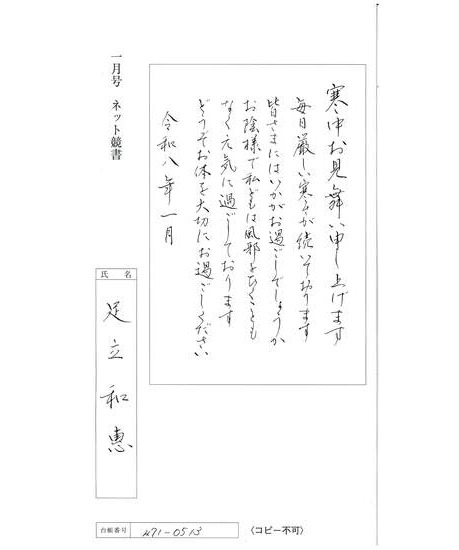 寒中お見舞い申し上げます
毎日厳しい寒さが続いております
皆さまにはいかがお過ごしでしょうか
お陰様で私どもは風邪をひくことも
なく元気に過ごしております
どうぞお体を大切にお過ごしください
令和八年一月
一月号 ネット競書
氏名
足立和恵
台帳番号
471-0513
〈コピー不可〉